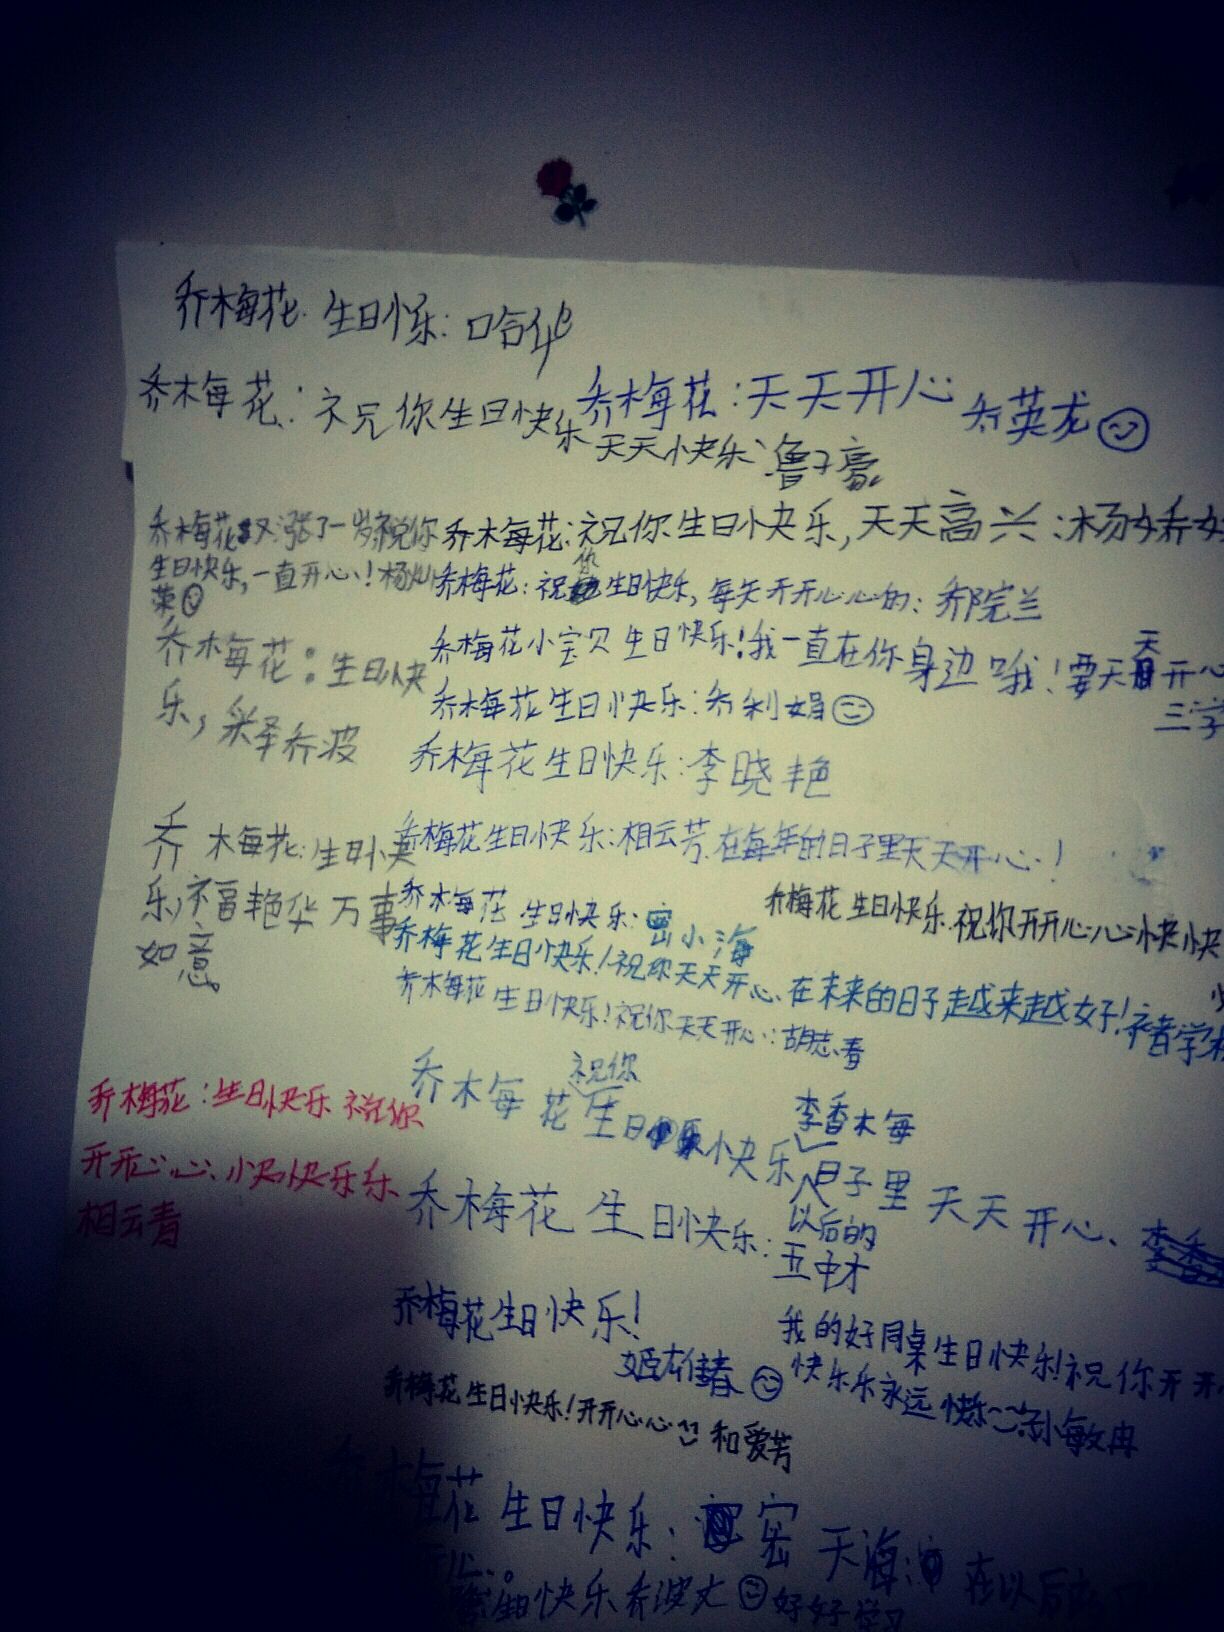 乔梅花:生日快乐:哈华
乔梅花:祝你生日快乐
天天快乐、鲁子豪
乔梅花:天天开心 乔英龙
乔梅花又涨了一岁祝你
生日快乐,一直开心!杨灿
荣
乔梅花:祝你生日快乐,天天高兴:杨娇
乔梅花:祝你生日快乐,每天开开心心的:
乔梅花小宝贝生日快乐!我一直在你身边哦!要天天开心
乔梅花:生日快
乐,
乔波
乔梅花生日快乐:乔利娟
乔梅花生日快乐:李晓艳
乔梅花生日快乐:相云芳.在每年的日子里天天开心!
乔梅花:生日快
乐,福艳华 万事
如意
乔梅花 生日快乐:密小海
乔梅花 生日快乐 祝你开开心心快快
乔梅花生日快乐!祝你天天开心、在未来的日子越来越好!
乔梅花生日快乐!祝你天天开心:胡志春
乔梅花:生日快乐 祝你
开开心心、快快乐乐
相云青
乔梅花 祝你生日快乐 李香梅
以后的日子里天天开心、
乔梅花 生日快乐:
乔梅花生日快乐!
姬春
我的好同桌生日快乐!祝你开开
快乐乐永远 孙敏冉
乔梅花生日快乐!开开心心 和爱芳
梅花 生日快乐:密天海 在以后
快乐 乔波丈 好好学习